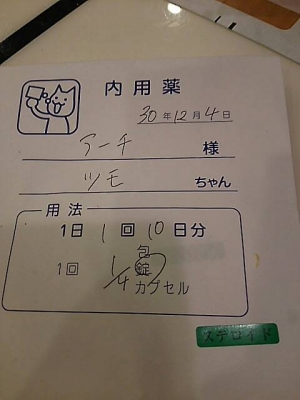 内用薬
30年12月4日
アーチ 様
ツモ ちゃん
用法
1日 1回 10日分
包
1回 1/4 錠
カプセル
ステロイド